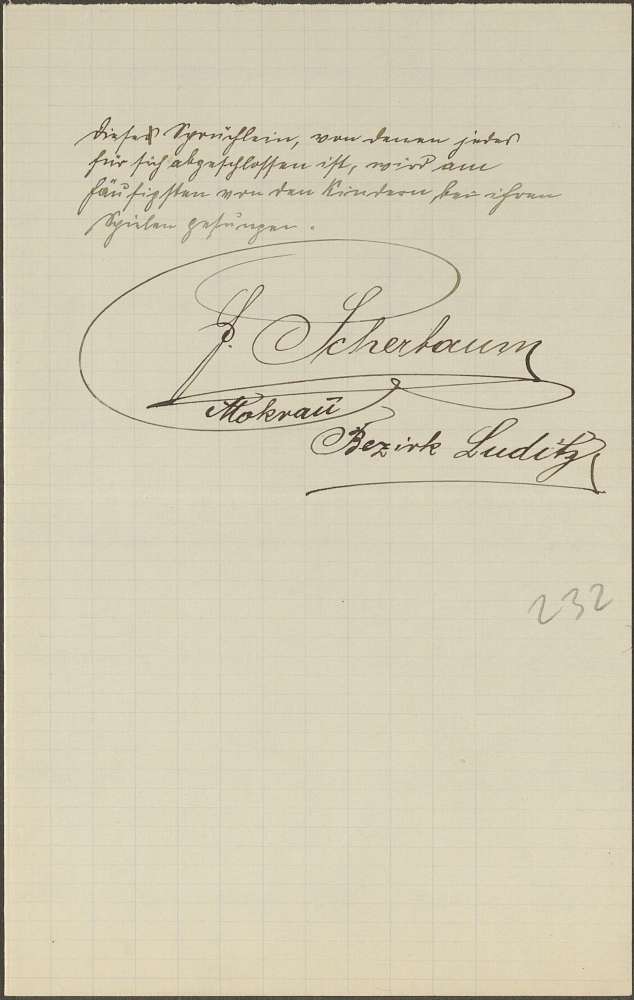 Dieses Sprüchlein, von denen jedes
für sich abgeschlossen ist, wird am
häufigsten von den Kindern, bei ihren
Spielen gesungen.
J. Scherbaum
Mokrau
Bezirk Luditz
232